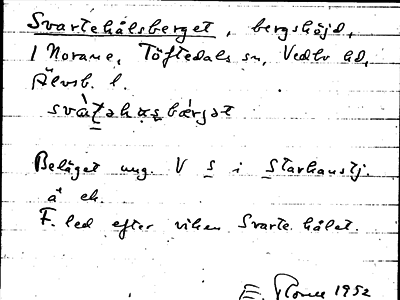 Svartehålsberget, bergshöjd,
I Norane, Töftedals sn, Vedbo hd,
Älvsb. l.
Beläget ung. V s i Starkanstj.
å ek.
F. led efter viken Svarte hålet.
E. 1952